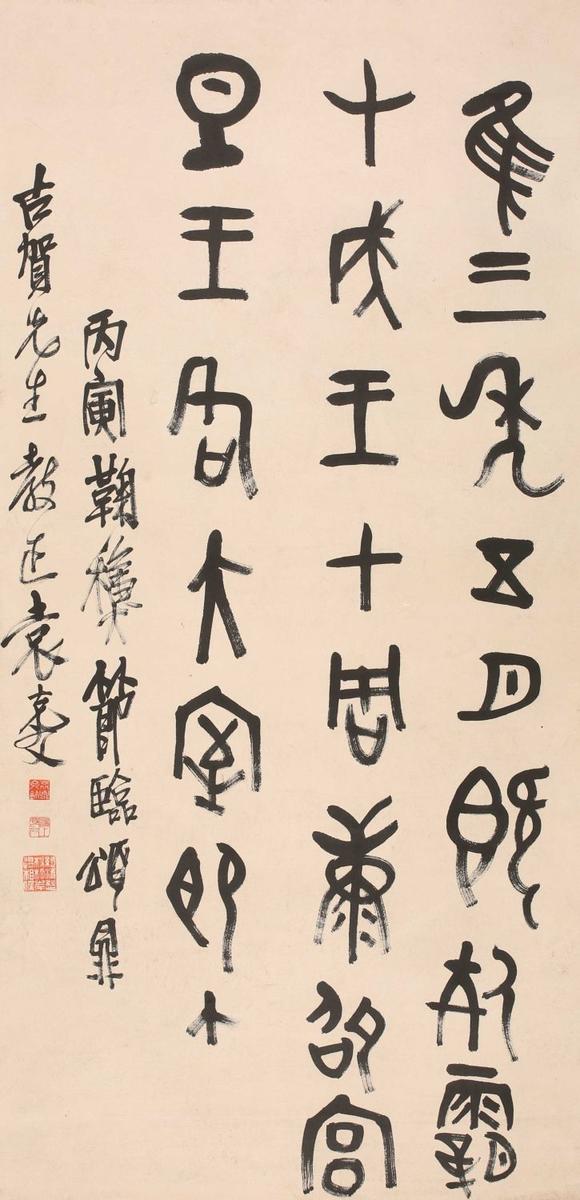 隹三年五月既死霸
甲戌王才周康卲宮
旦王各大室即立
丙寅鞠龝節臨頌鼎
古賀先生教正袁克文